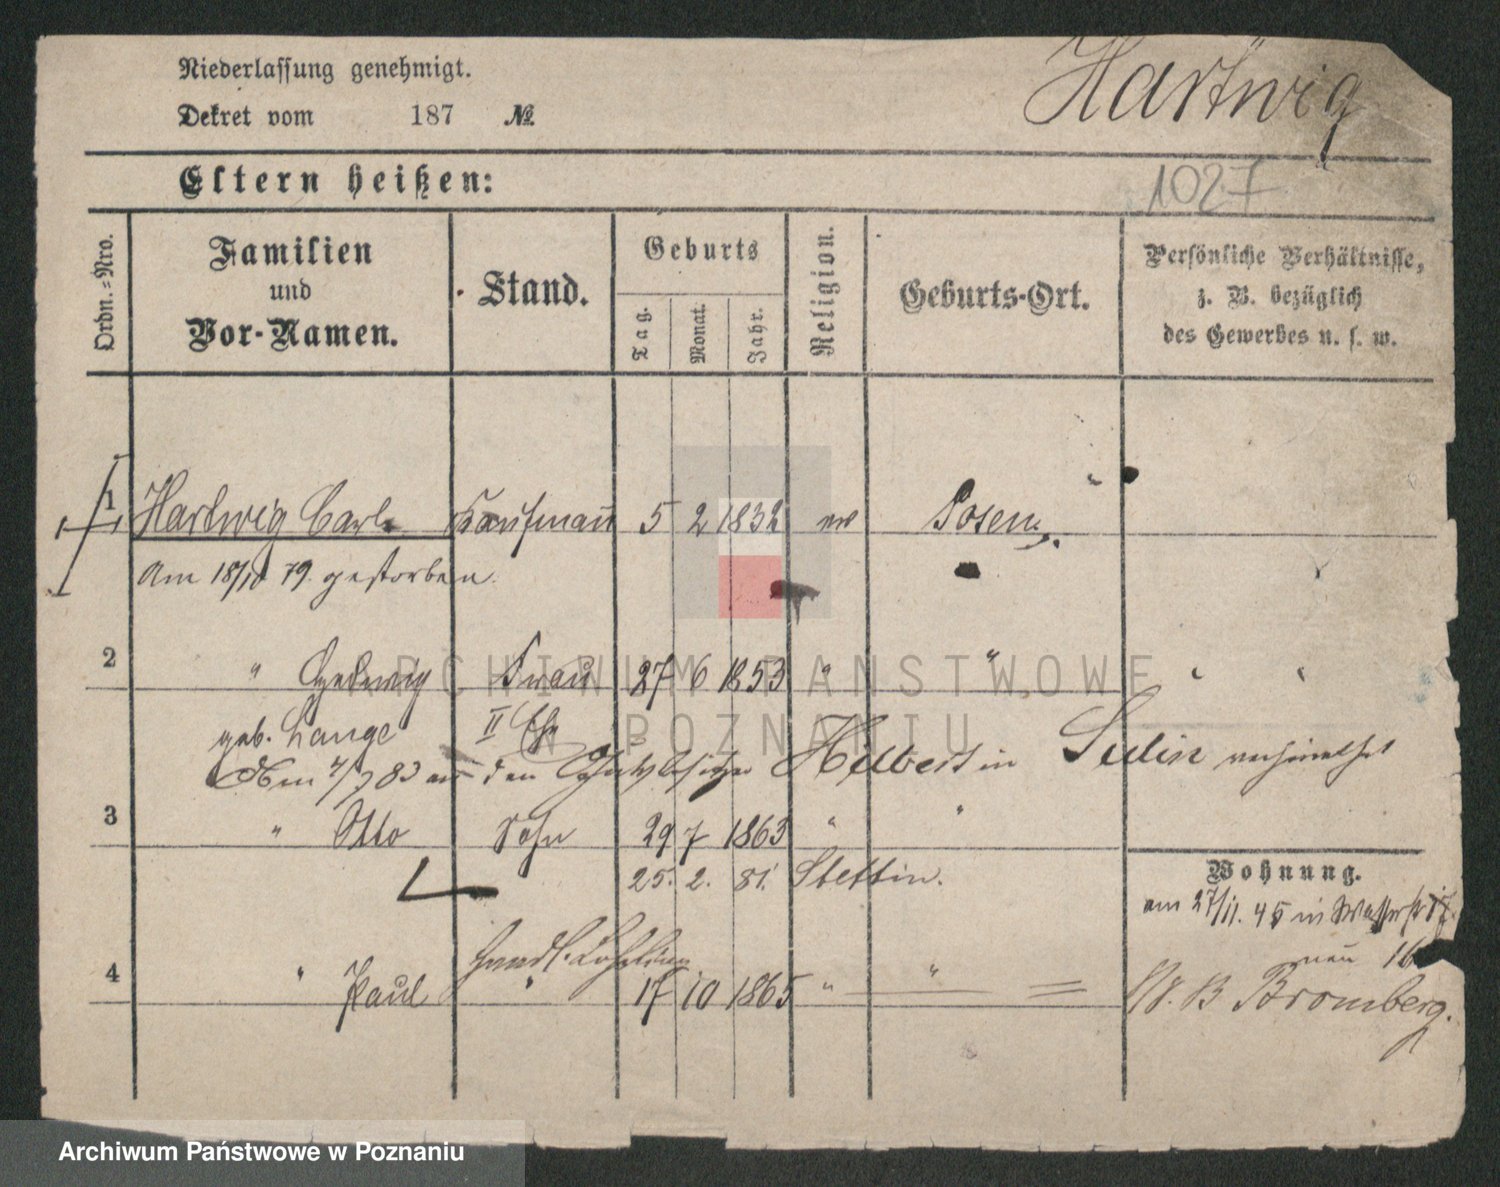 Niederlassung genehmigt.
Dekret vom 187 №
Hartwig
Eltern heißen:
1027
Ordn.-Nro.
Familien
und
Vor-Namen.
Stand.
Geburts
Tag.
Monat.
Jahr.
Religion.
Geburts-Ort.
Persönliche Verhältnisse,
z. B. bezüglich
des Gewerbes u. s. w.
1 Hartwig Carl Kaufmann 5 2 1832 ev Posen
Am 18/10 79. gestorben.
2 " Hedwig Frau 27 6 1853 " "
geb. Lange II Ehe
den Hilbert in verheirathet
3 " Otto Sohn 29 7 1863 " "
25. 2. 81. Stettin.
Wohnung.
am 27/11. 45 in Wasserstr
neu 16
Handl. Lehrling
4 " Paul " 17 10 1865 " "
Bromberg.
ARCHIWUM PAŃSTWOWE
W POZNANIU
Archiwum Państwowe w Poznaniu